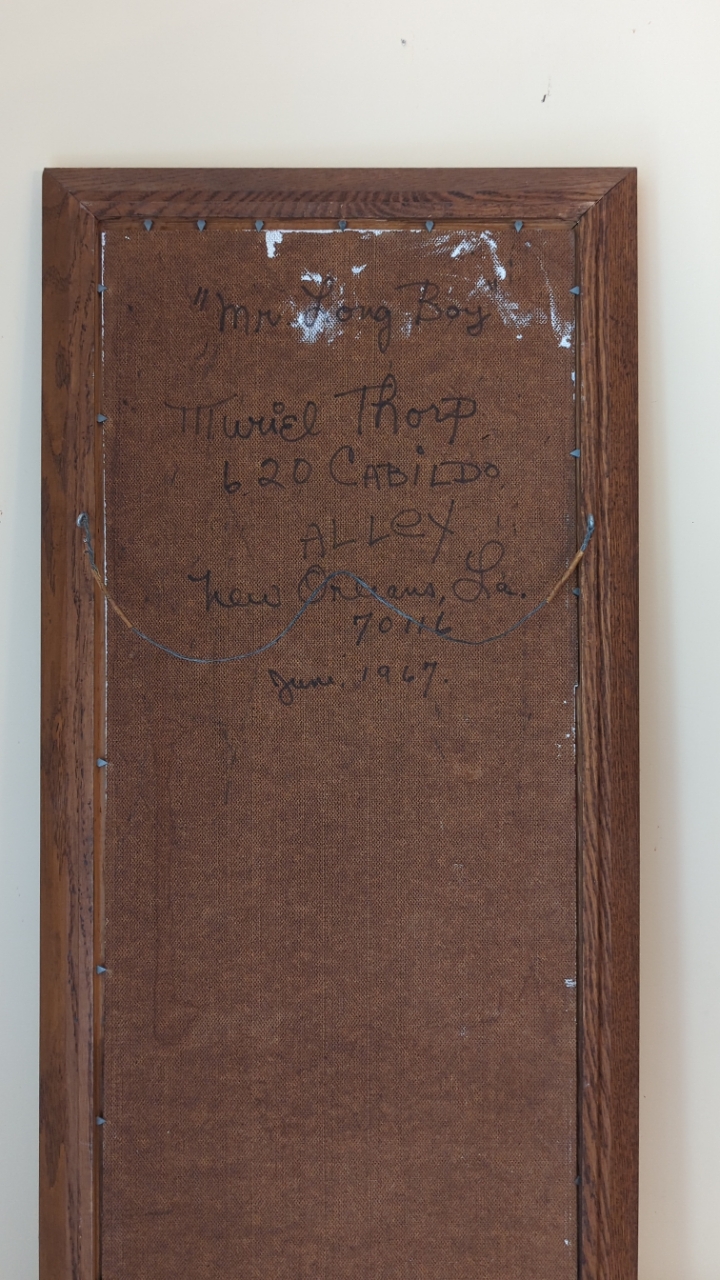 "Mr. Long Boy"
Muriel Thorp
620 CABILDO
ALLEY
New Orleans, La.
70116
June, 1967.